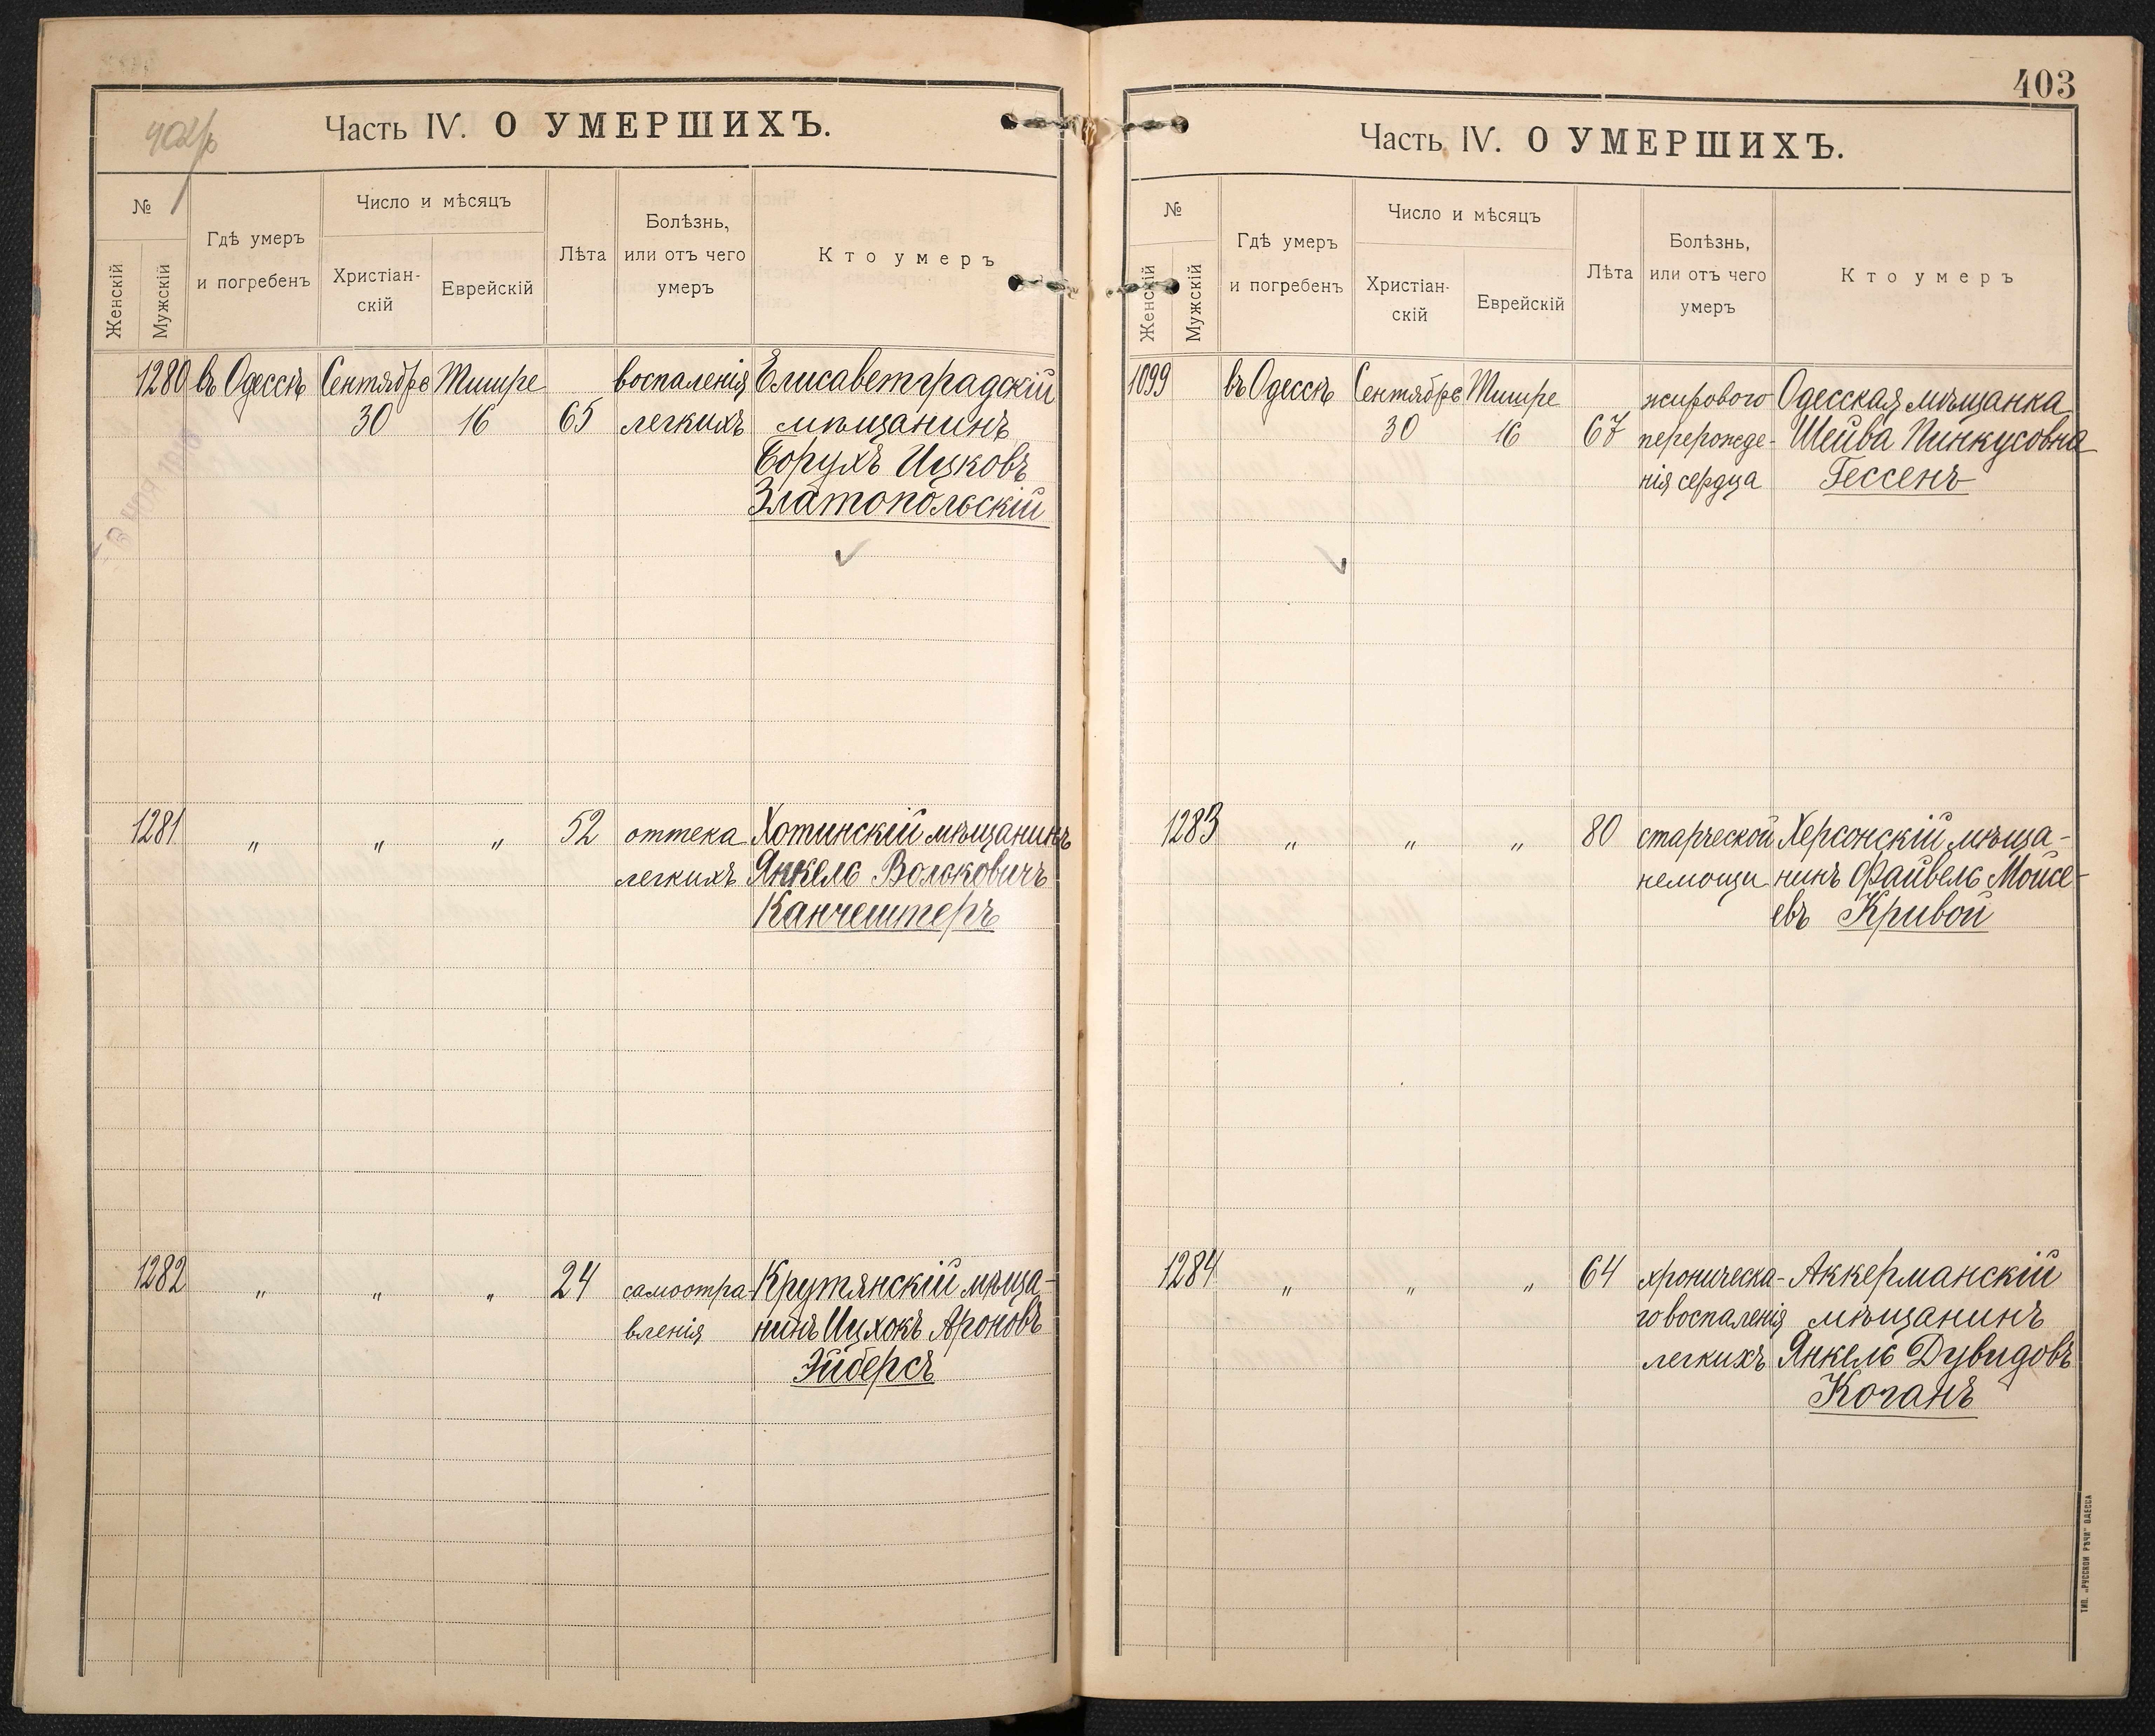 402/б
Часть IV. О УМЕРШИХЪ.
№
Женскій
Мужскій
Гдѣ умеръ
и погребенъ
Число и мѣсяцъ
Христіан-
скій
Еврейскій
Лѣта
Болѣзнь,
или отъ чего
умеръ
Кто умеръ
1280 въ Одессѣ Сентябрь Тишре воспаленія Елисаветградскій
30 16 65 легкихъ мѣщанинъ
Борухъ Ицковъ
Златопольскій
1281 " " " 52 оттека Хотинскій мѣщанинъ
легкихъ Янкель Вольковичъ
Канчештеръ
1282 " " " 24 самоотра- Крутянскій мѣща-
вленія нинъ Ицхокъ Ароновъ
Эйдберсъ
403
Часть IV. О УМЕРШИХЪ.
№
Женскій
Мужскій
Гдѣ умеръ
и погребенъ
Число и мѣсяцъ
Христіан-
скій
Еврейскій
Лѣта
Болѣзнь,
или отъ чего
умеръ
Кто умеръ
1099 въ Одессѣ Сентябрь Тишре жирового Одесская мѣщанка
30 16 67 перерожде- Шейва Пинкусовна
нія сердца Гессенъ
1283 " " " 80 старческой Херсонскій мѣща-
немощи нинъ Файвель Мойсе-
евъ Кривой
1284 " " " 64 хроническа- Аккерманскій
го воспаленія мѣщанинъ
легкихъ Янкель Дувидовъ
Коганъ
ТИП. „РУССКОЙ РѢЧИ" ОДЕССА